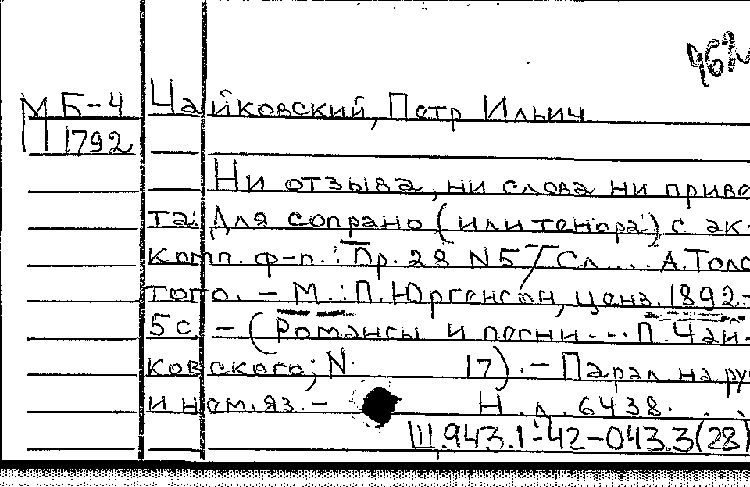 962
М Б-4 Чайковский, Петр Ильич
1792
Ни отзыва, ни слова ни приве
та: Для сопрано (или тенора) с ак-
комп. ф-п.: Пр. 28 N5 / Сл... А. Толс
того. - М.: П. Юргенсон, ценз. 1892.-
5 с. - (Романсы и песни... П. Чай-
ковского; N 17). - Парал. на ру
и нем. яз. - Н. д. 6438.
Ш.943.1-42-043.3(28)